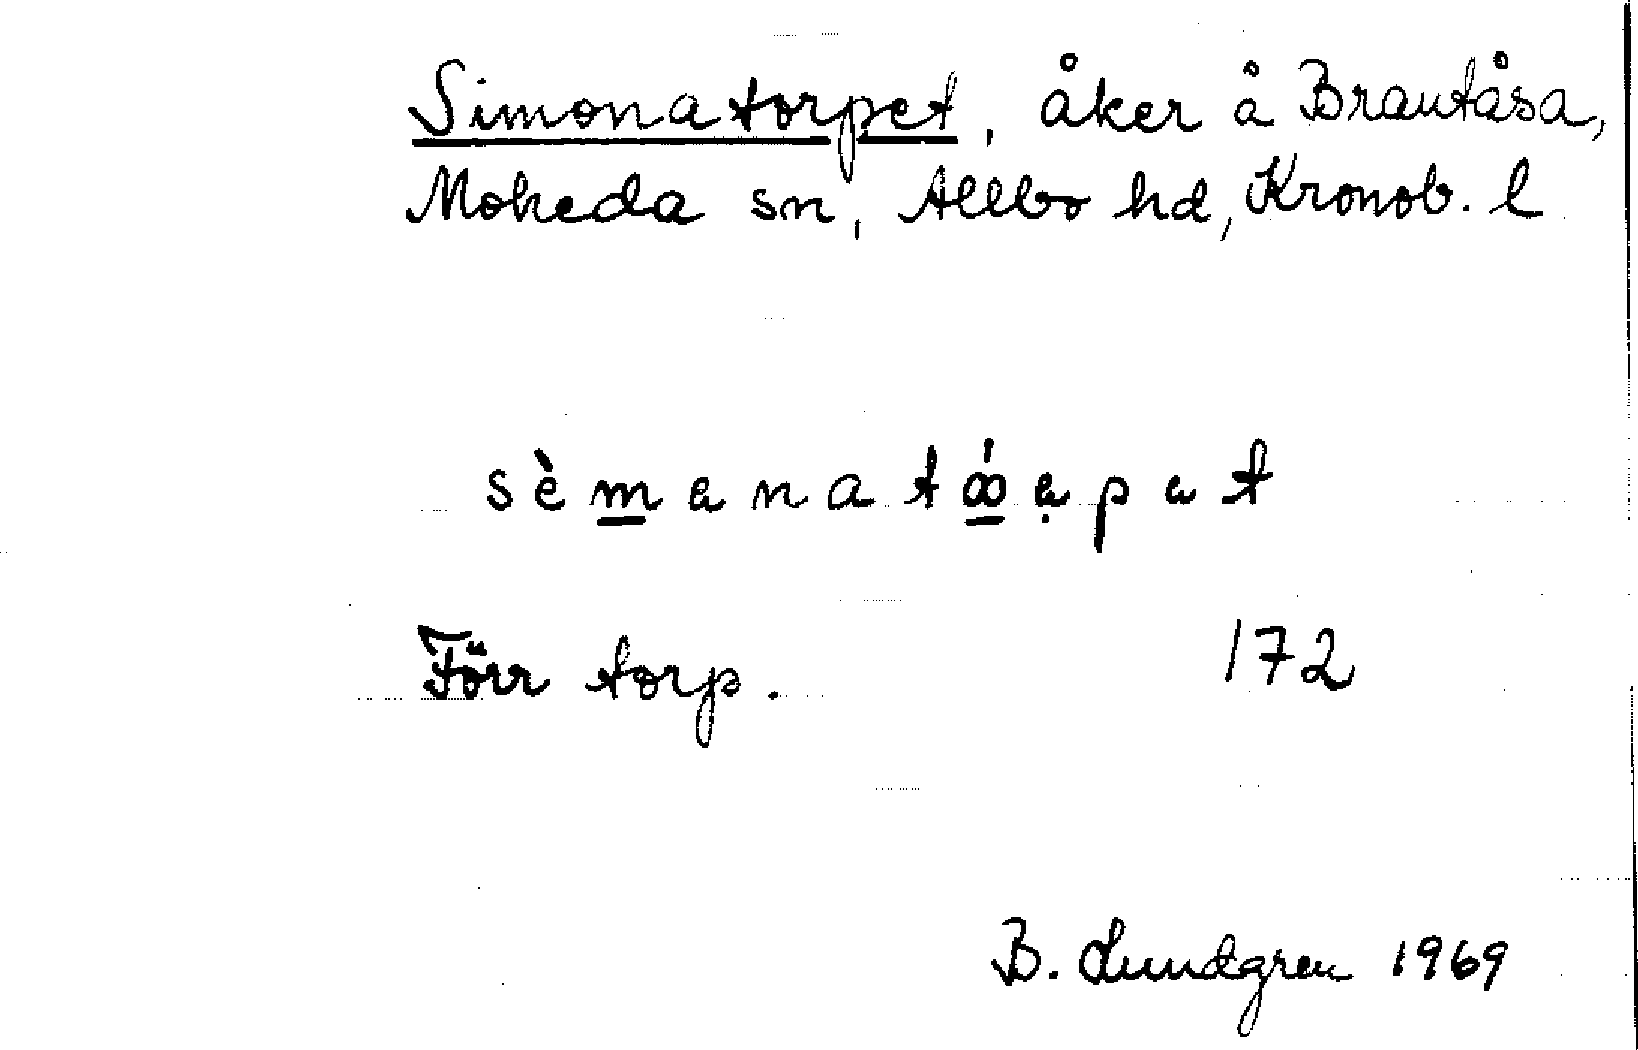 Simonatorpet, åker å Brautåsa,
Moheda sn, Allbo hd, Kronob. l
sèmanatóapat
Förr torp. 172
B. Lundgren 1969